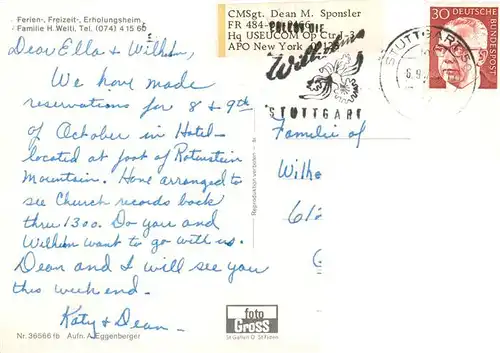 - Ferien-, Freizeit-, Erholungsheim,
- Familie H. Welti, Tel. (074) 415 66
Dear Ella & Wilhelm,
We have made
reservations for 8 & 9th
of October in Hotel-
located at foot of Rotenstein
Mountain. Have arranged to
see Church records back
thru 1300. Do you and
Wilhelm want to go with us.
Dean and I will see you
this weekend.
Katy & Dean
Nr. 36566 fb Aufn. A. Eggenberger
Reproduktion verboten
CMSgt. Dean M. Sponsler
FR 484-
Hq USEUCOM Op Ctr
APO New York
STUTTGART
STUTTGART
30
DEUTSCHE BUNDESPOST
Familie
Wilhe
foto
Gross
St Gallen